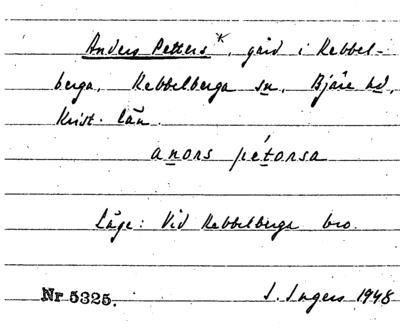 Anders Petters*, gård i Rebbel-
berga, Rebbelberga sn, Bjäre hd,
Krist. län.
anors pétorsa
Läge: Vid Rebbelberga bro.
Nr 5325. I. Ingers 1948